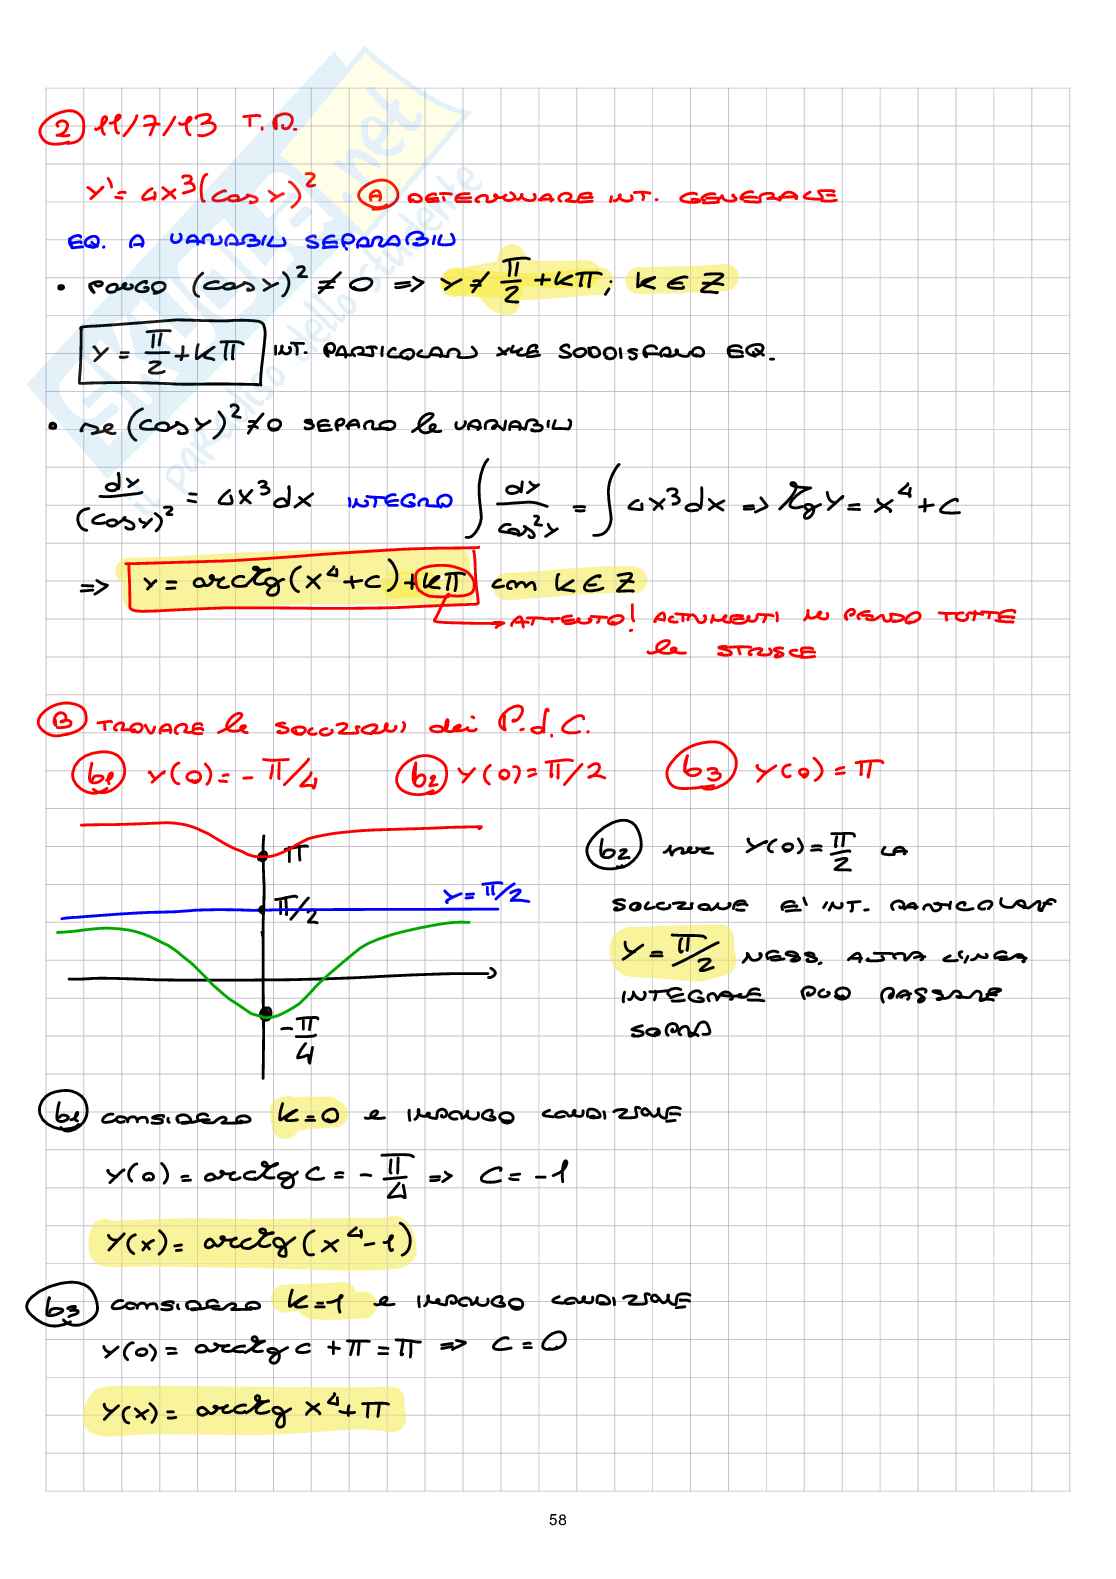 2 11/7/13 T.A.
y' = 4x³(cos y)² A DETERMINARE INT. GENERALE
EQ. A VARIABILI SEPARABILI
• PONGO (cos y)² ≠ 0 => y ≠ π/2 + kπ; k ∈ Z
y = π/2 + kπ INT. PARTICOLARI XKE SODDISFANO EQ.
• se (cos y)² ≠ 0 SEPARO le VARIABILI
dy/(cos y)² = 4x³dx INTEGRO ∫ dy/cos²y = ∫ 4x³dx => tg y = x⁴ + c
=> y = arctg(x⁴ + c) + kπ con k ∈ Z
ATTENTO! ALTRIMENTI MI PERDO TUTTE
le STRISCE
B TROVARE le SOLUZIONI dei P.d.C.
b1 y(0) = -π/4 b2 y(0) = π/2 b3 y(0) = π
π
π/2
y = π/2
-π/4
b2 per y(0) = π/2 LA
SOLUZIONE E' INT. PARTICOLARE
y = π/2 NESS. ALTRA LINEA
INTEGRALE PUO PASSARE
SOPRA
b1 CONSIDERO k=0 e IMPONGO CONDIZIONE
y(0) = arctg c = -π/4 => c = -1
y(x) = arctg(x⁴-1)
b3 CONSIDERO k=1 e IMPONGO CONDIZIONE
y(0) = arctg c + π = π => c = 0
y(x) = arctg x⁴ + π
58